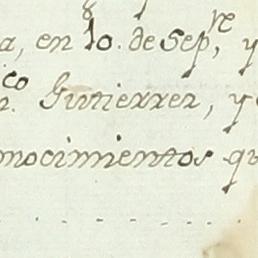 a, en 10. de Sep.re, y
co Gutierrez, y
nocimientos qu